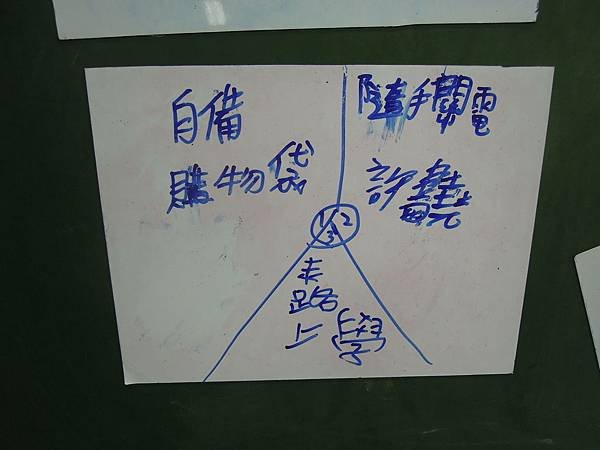 自備
購物袋
隨手關電
1 2
3
走
路
上學